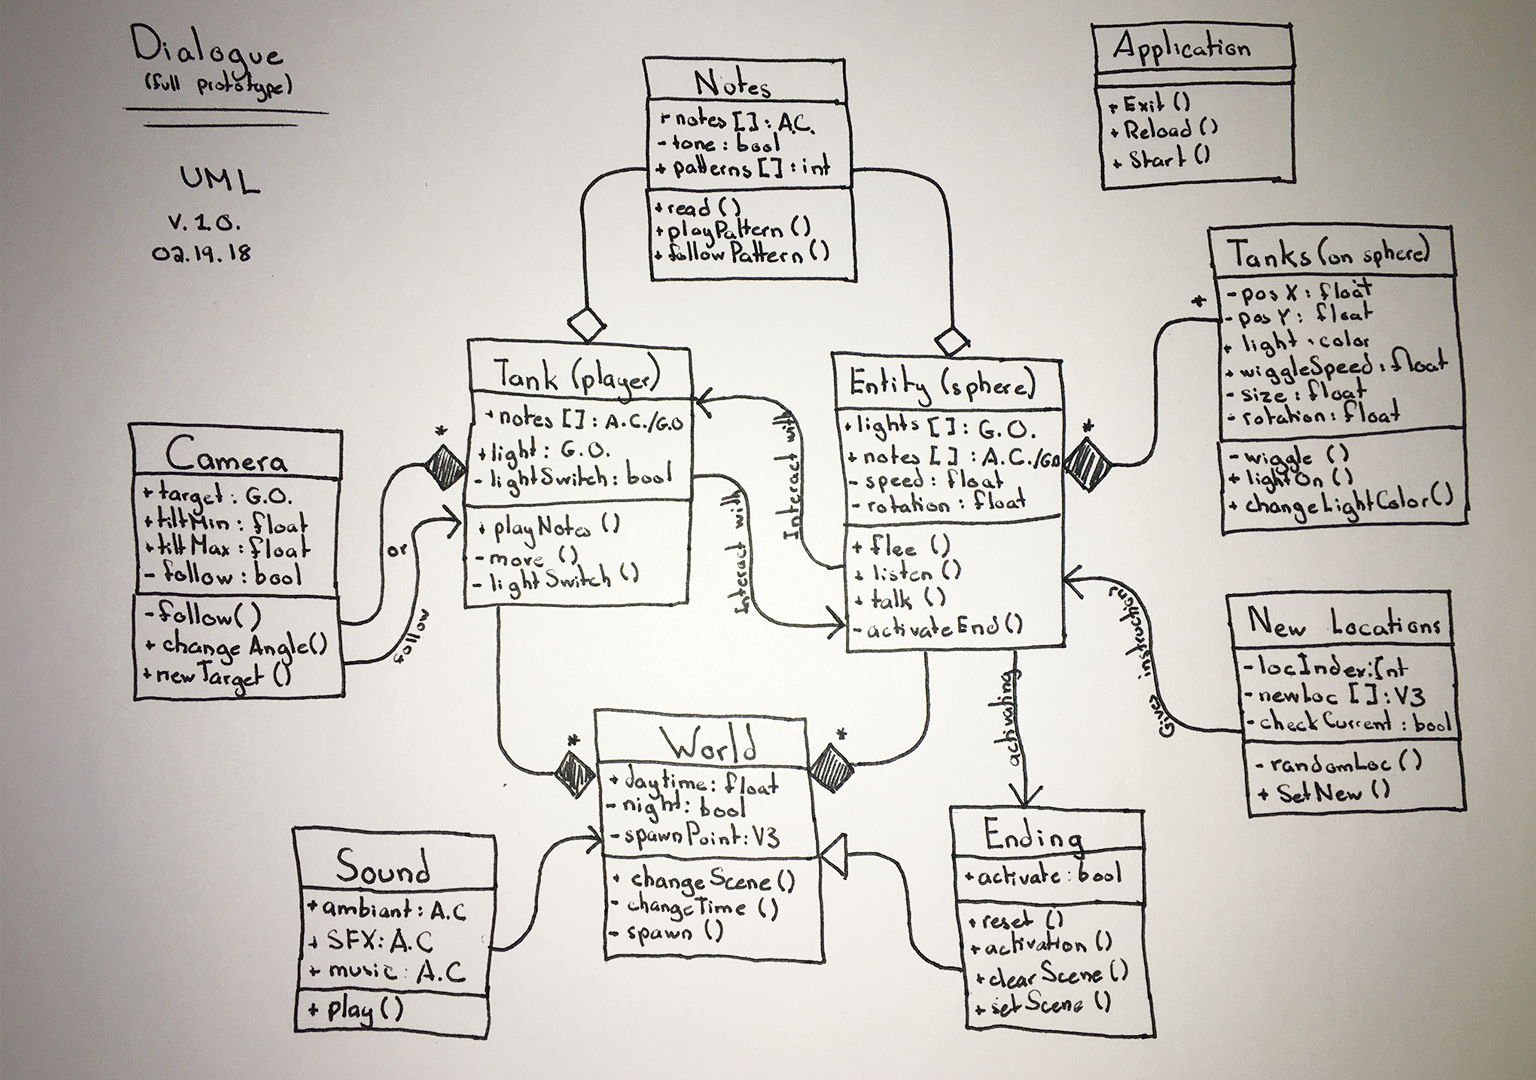 Dialogue
(full prototype)
UML
V. 1.0.
02.19.18
Notes
+ notes [] : A.C.
- tone : bool
+ patterns [] : int
+ read ()
+ playPattern ()
+ followPattern ()
Application
+ Exit ()
+ Reload ()
+ Start ()
Tanks (on sphere)
- pos X : float
- pos Y : float
+ light : color
+ wiggleSpeed : float
- size : float
- rotation : float
- wiggle ()
+ lightOn ()
+ changeLightColor ()
*
Tank (player)
+ notes [] : A.C./G.O
+ light : G.O.
- lightSwitch : bool
+ playNotes ()
- move ()
- lightSwitch ()
Interact with
Interact with
Entity (sphere)
+ lights [] : G.O.
+ notes [] : A.C./G.O
- speed : float
- rotation : float
+ flee ()
+ listen ()
+ talk ()
- activateEnd ()
*
Camera
+ target : G.O.
+ tiltMin : float
+ tiltMax : float
- follow : bool
- follow ()
+ changeAngle ()
+ newTarget ()
*
or
follow
New Locations
- locIndex : Int
- newLoc [] : V3
- checkCurrent : bool
- randomLoc ()
+ SetNew ()
Gives instructions
activating
World
+ daytime : float
- night : bool
- spawnPoint : V3
+ changeScene ()
- changeTime ()
- spawn ()
*
*
Sound
+ ambiant : A.C
+ SFX : A.C
+ music : A.C
+ play ()
Ending
+ activate : bool
+ reset ()
+ activation ()
+ clearScene ()
+ setScene ()